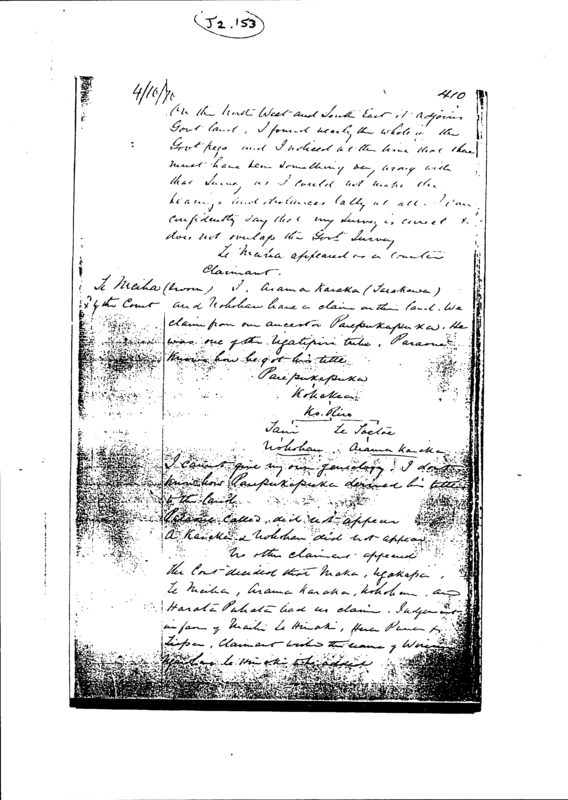 J2.153
4/10/70
410
On the North West and South East it adjoins
Govt land. I found nearly the whole of the
Govt pegs and I noticed at the time that there
must have been something very wrong with
that Survey as I could not make the
bearings and distances tally at all. I can
confidently say that my Survey is correct &
does not overlap the Govt Survey
Te Meiha appeared as a Counter
Claimant.
Te Meiha (sworn) I, Arama Karaka (Tarakawa)
X by the Court and Wohohau have a claim on this land. We
claim from our ancestor Parepukapuka. He
was one of the tribe. Paraone
knows how he got his title
Parepukapuka
Te
Arama Karaka
I cannot give my own genealogy. I don't
know how Parepukapuka derived his title
to the land.
called, did not appear
A Karaka & did not appear
No other claimant appeared
The Court decided that Maka,
Te Meiha, Arama Karaka, and
Harata had no claim. Judgment
in favor of Te Hinaki,
Claimant wished the name of
Te Hinaki to be